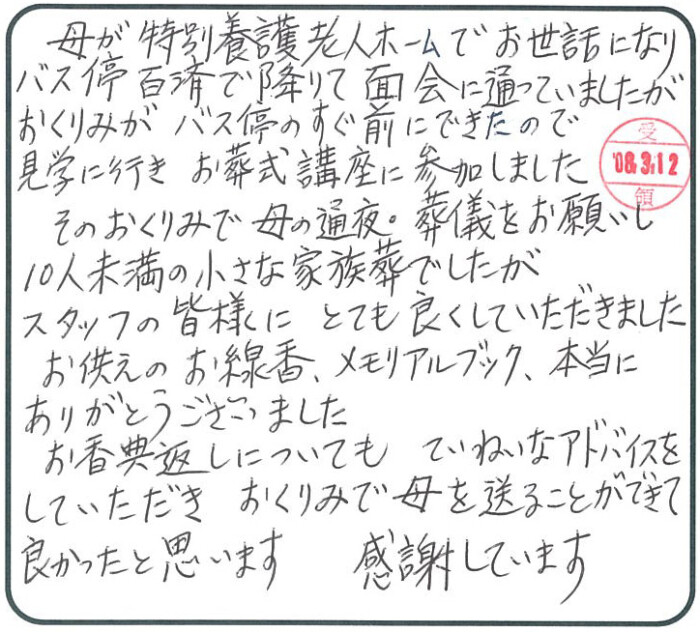 母が特別養護老人ホームでお世話になり
バス停百済で降りて面会に通っていましたが
おくりみが バス停のすぐ前にできたので
見学に行き お葬式講座に参加しました
受
'08.3.12
領
そのおくりみで母の通夜。葬儀をお願いし
10人未満の小さな家族葬でしたが
スタッフの皆様に とても良くしていただきました
お供えのお線香、メモリアルブック、本当に
ありがとうございました
お香典返しについても ていねいなアドバイスを
していただき おくりみで母を送ることができて
良かったと思います 感謝しています